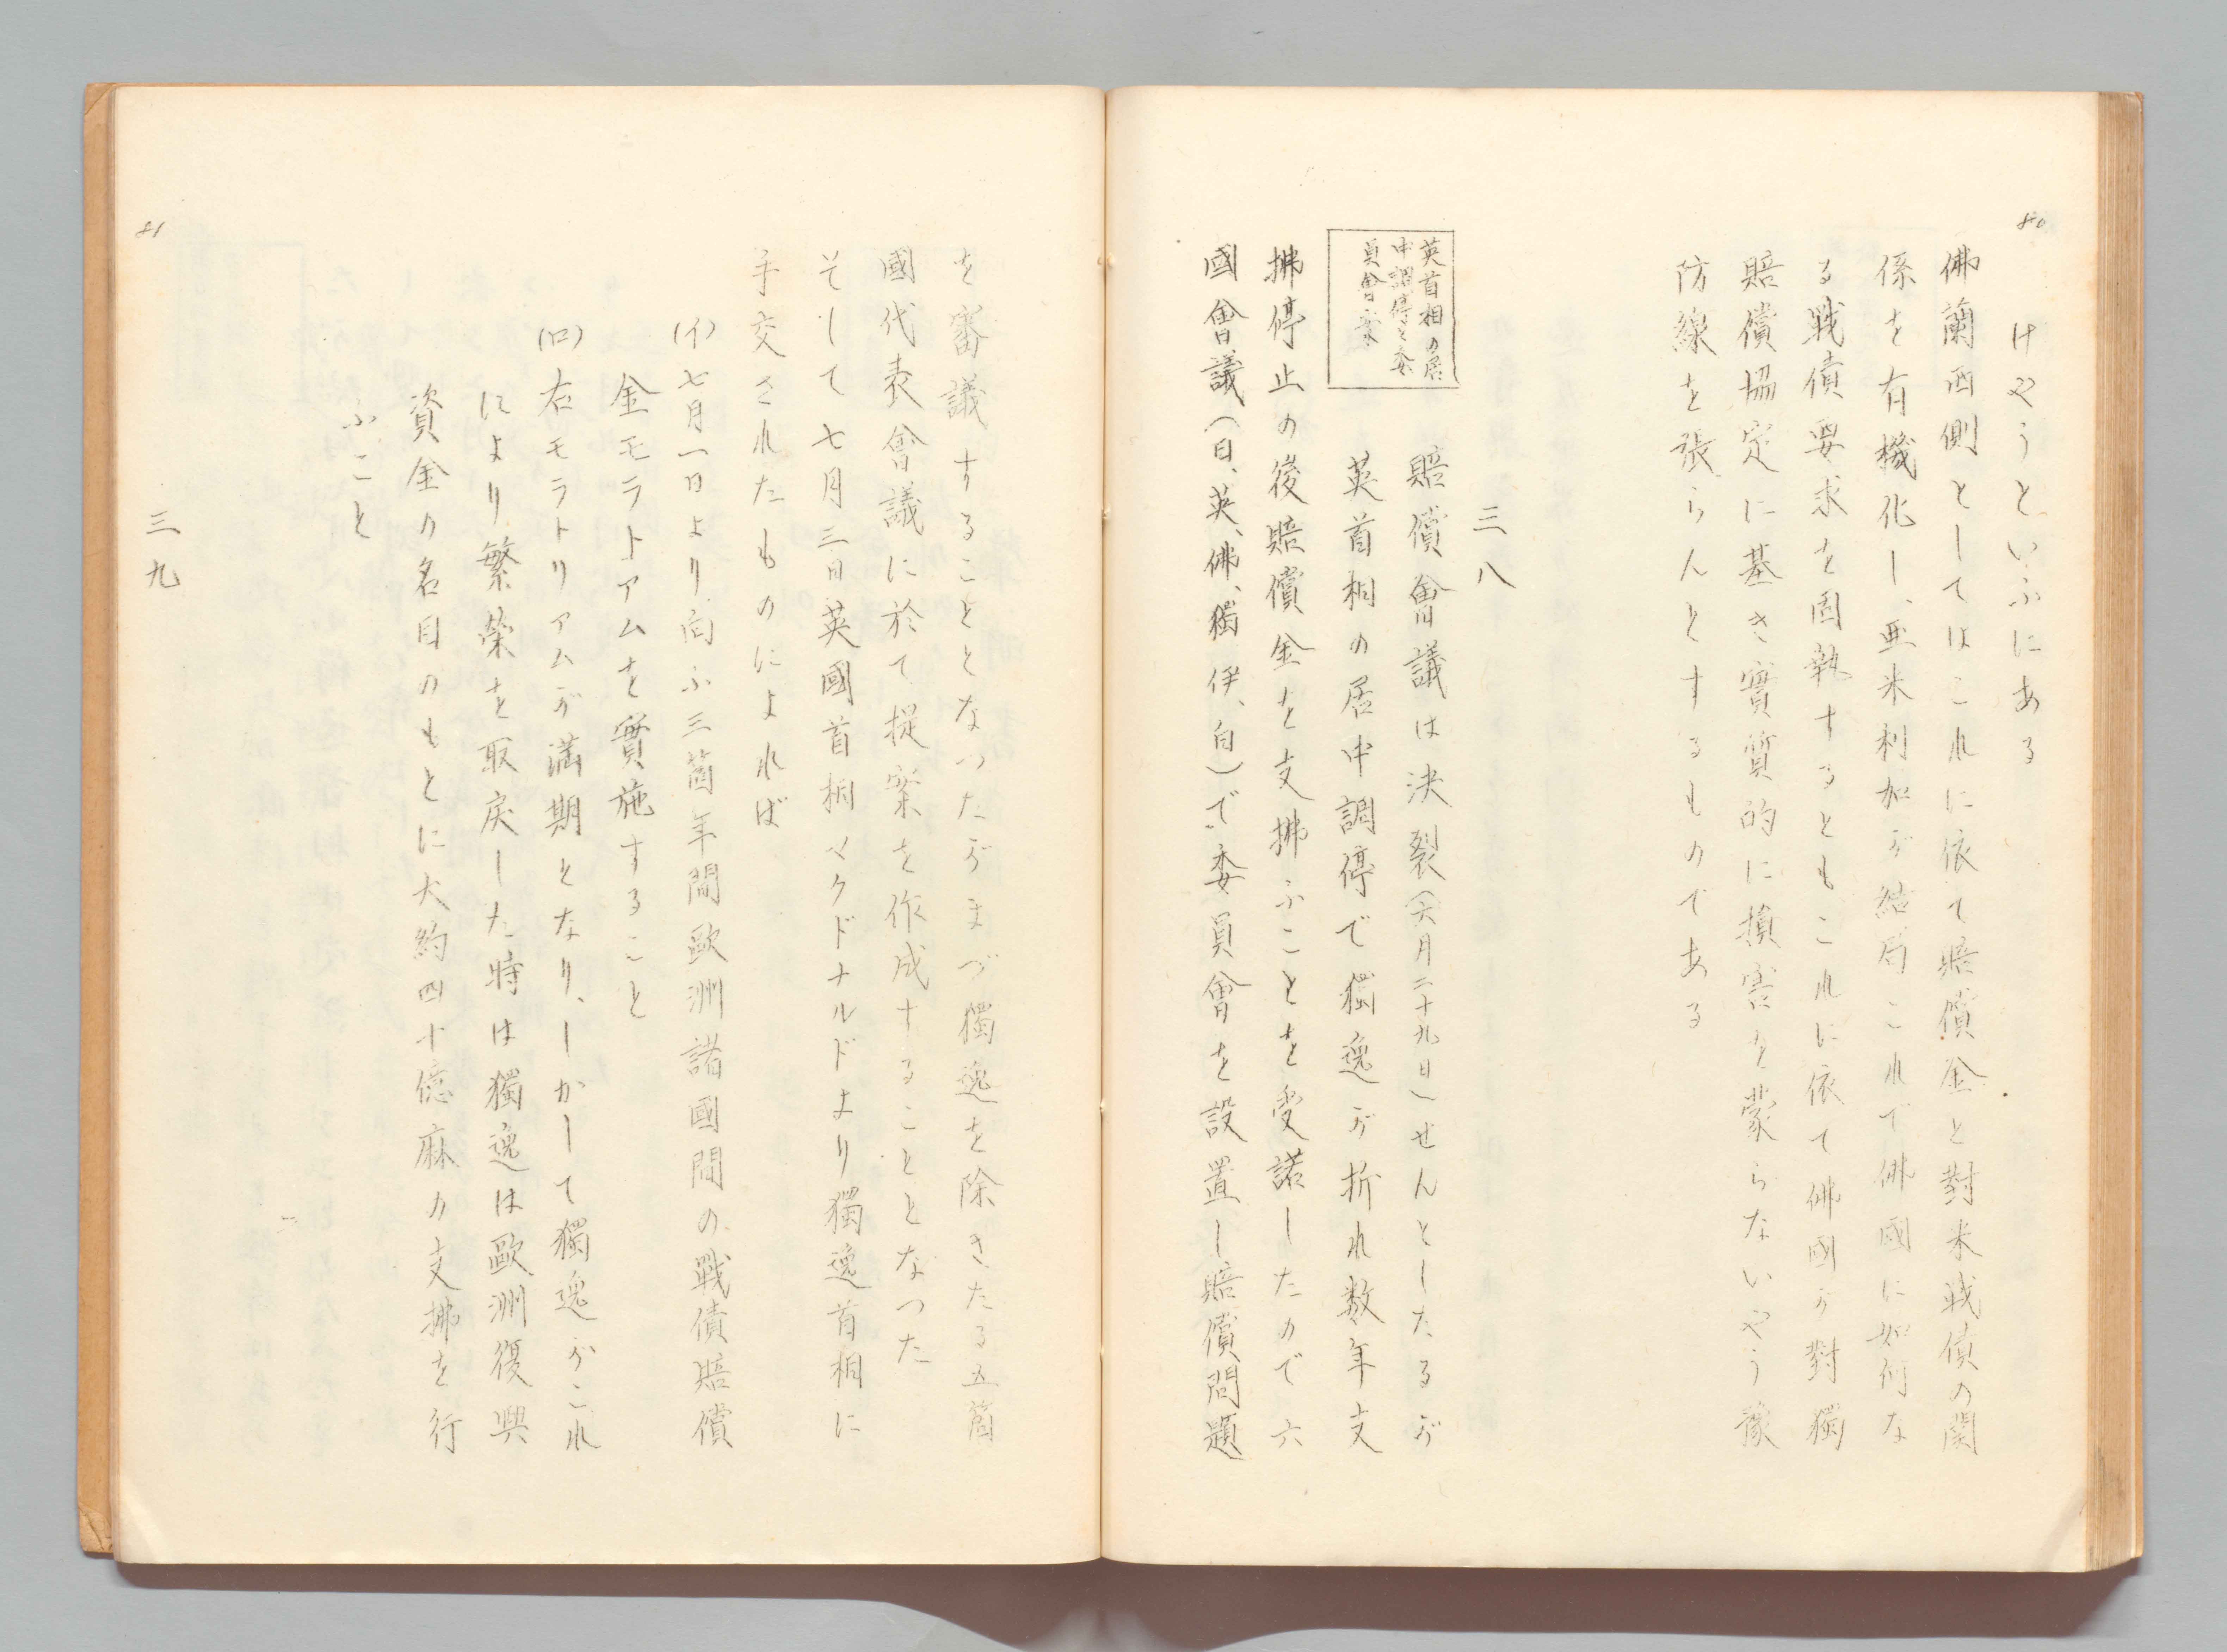 80
けやうといふにある
佛蘭西側としてはこれに依て賠償金と對米戦債の関
係を有機化し、亜米利加が結局これで佛國に如何な
る戦債要求を固執するともこれに依て佛國が對獨
賠償協定に基き實質的に損害を蒙らないやう豫
防線を張らんとするものである
三八
英首相の居
中調停と委
員會案
賠償會議は決裂(六月二十九日)せんとしたるが
英首相の居中調停で獨逸が折れ数年支
拂停止の後賠償金を支拂ふことを受諾したので六
國會議(日、英、佛、獨、伊、白)で委員會を設置し賠償問題
を審議することとなつたがまづ獨逸を除きたる五箇
國代表會議に於て提案を作成することとなつた
そして七月三日英國首相マクドナルドより獨逸首相に
手交されたものによれば
(イ)七月一日より向ふ三箇年間歐洲諸國間の戦債賠償
金モラトアムを實施すること
(ロ)右モラトリアムが満期となり、しかして獨逸がこれ
により繁榮を取戻した時は獨逸は歐洲復興
資金の名目のもとに大約四十億麻の支拂を行
ふこと
三九
81